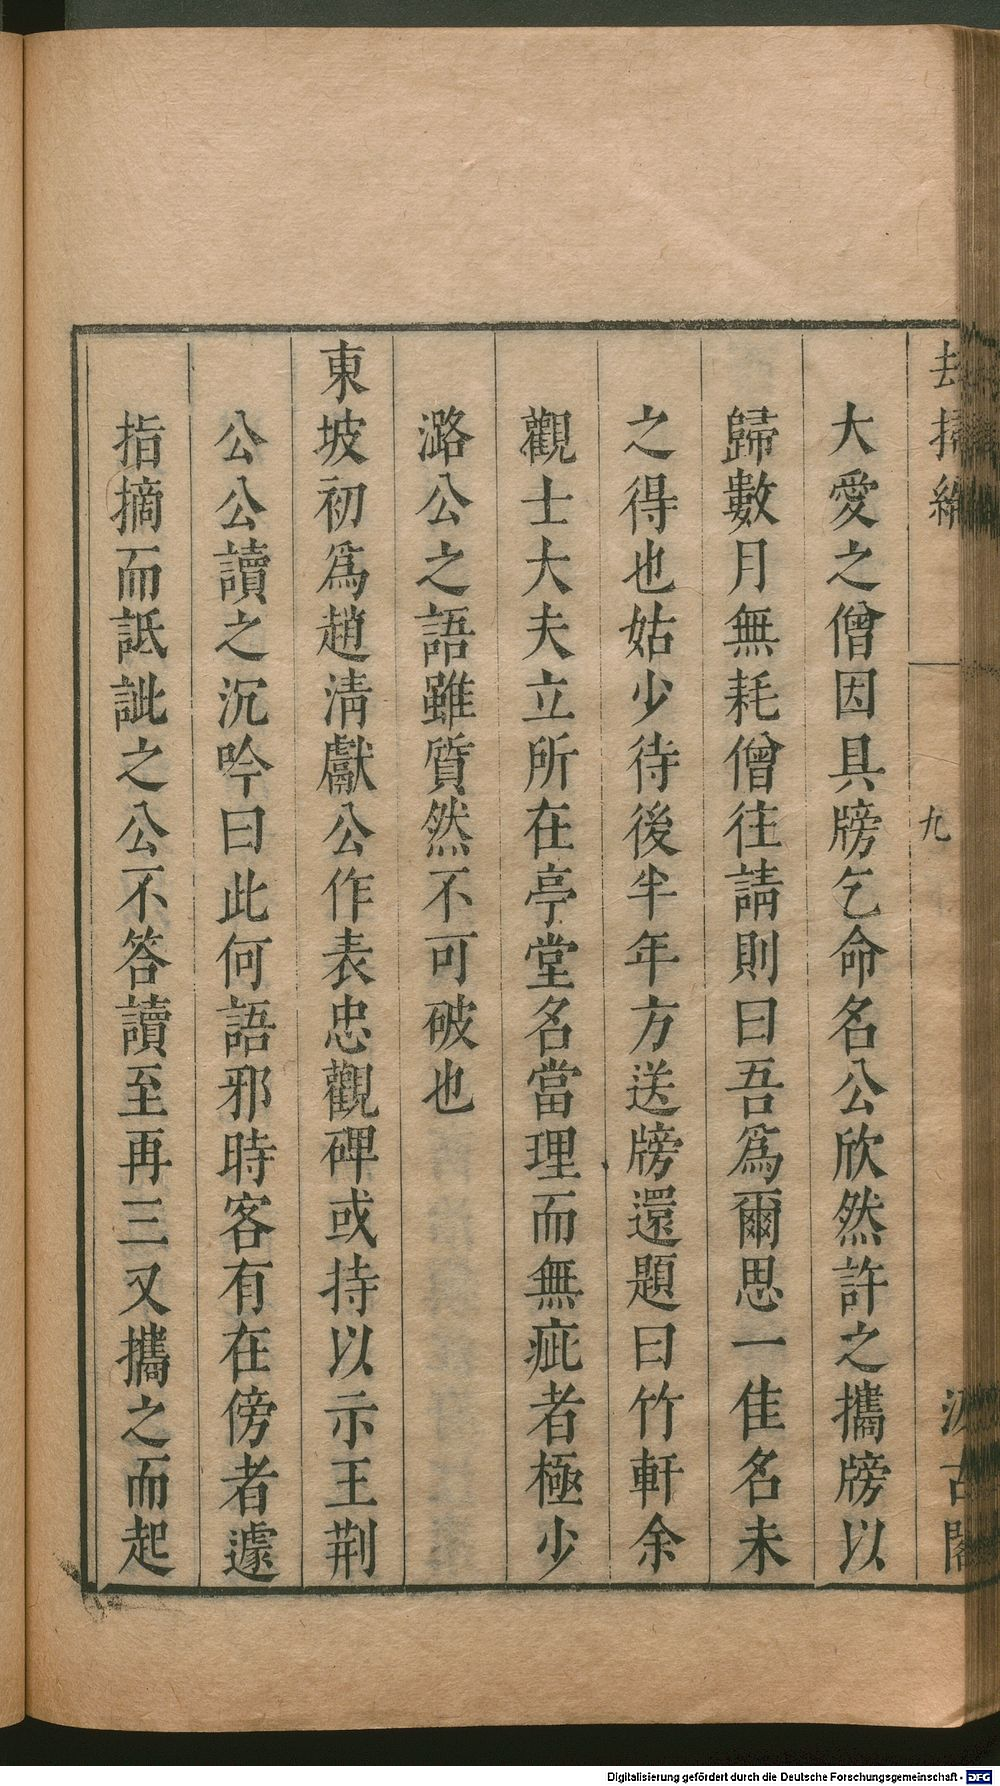 大愛之僧因具牓乞命名公欣然許之攜牓以
歸數月無耗僧往請則曰吾爲爾思一佳名未
之得也姑少待後半年方送牓還題曰竹軒余
觀士大夫立所在亭堂名當理而無疵者極少
潞公之語雖質然不可破也
東坡初爲趙清獻公作表忠觀碑或持以示王荆
公公讀之沉吟曰此何語邪時客有在傍者遽
指摘而詆訿之公不答讀至再三又攜之而起
九
Digitalisierung gefördert durch die Deutsche Forschungsgemeinschaft - DFG